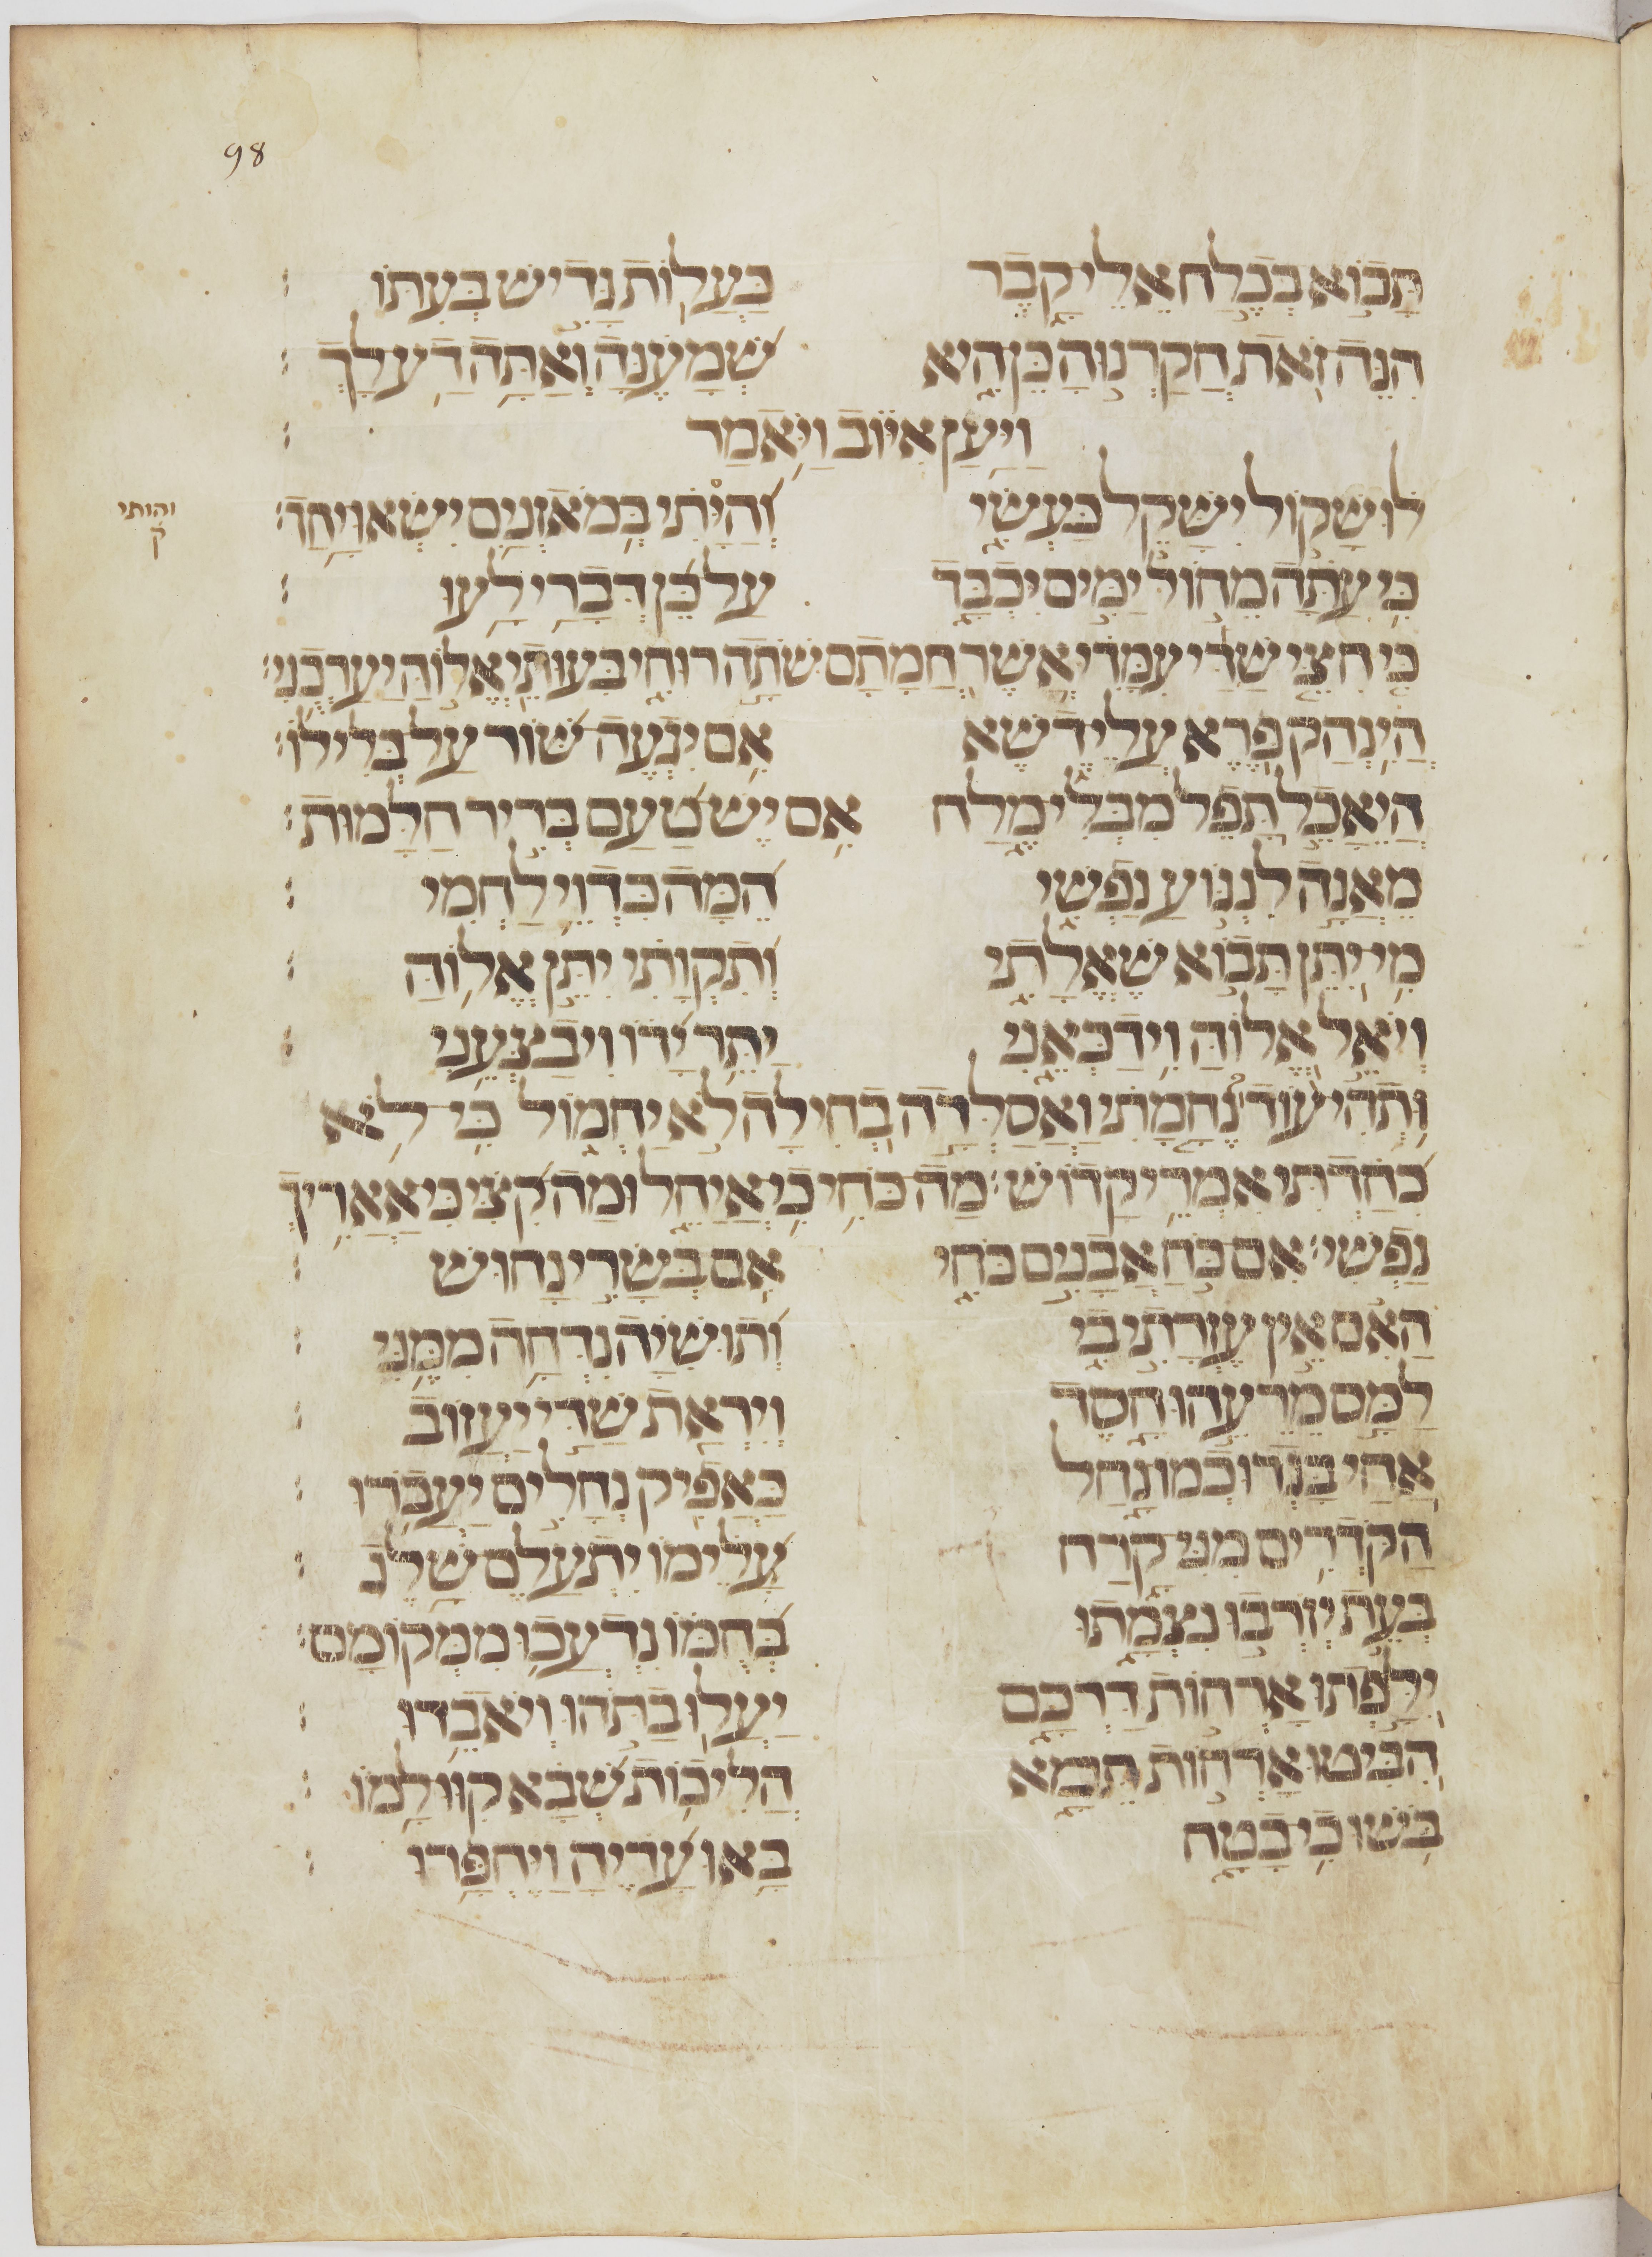 98
תָּבוֹא בְכֶלַח אֱלֵי קָבֶר כַּעֲלוֹת גָּדִישׁ בְּעִתּוֹ׃
הִנֵּה זֹאת חֲקַרְנוּהָ כֶּן הִיא שְׁמָעֶנָּה וְאַתָּה דַע לָךְ׃
וַיַּעַן אִיּוֹב וַיֹּאמַר׃
לוּ שָׁקוֹל יִשָּׁקֵל כַּעְשִׂי וְהַיָּתִי בְּמֹאזְנַיִם יִשְׂאוּ יָחַד׃
והותי
ק
כִּי עַתָּה מֵחוֹל יַמִּים יִכְבָּד עַל כֵּן דְּבָרַי לָעוּ׃
כִּי חִצֵּי שַׁדַּי עִמָּדִי אֲשֶׁר חֲמָתָם שֹׁתָה רוּחִי בִּעוּתֵי אֱלוֹהַּ יַעַרְכֻנִי׃
הֲיִנְהַק פֶּרֶא עֲלֵי דֶשֶׁא אִם יִגְעֶה שּׁוֹר עַל בְּלִילוֹ׃
הֲיֵאָכֵל תָּפֵל מִבְּלִי מֶלַח אִם יֶשׁ טַעַם בְּרִיר חַלָּמוּת׃
מֵאֲנָה לִנְגּוֹעַ נַפְשִׁי הֵמָּה כִּדְוֵי לַחְמִי׃
מִי יִתֵּן תָּבוֹא שֶׁאֱלָתִי וְתִקְוָתִי יִתֵּן אֱלוֹהַּ׃
וְיֹאֵל אֱלוֹהַּ וִידַכְּאֵנִי יַתֵּר יָדוֹ וִיבַצְּעֵנִי׃
וּתְהִי עוֹד נֶחָמָתִי וַאֲסַלְּדָה בְחִילָה לֹא יַחְמוֹל כִּי לֹא
כִחַדְתִּי אִמְרֵי קָדוֹשׁ׃ מַה כֹּחִי כִי אֲיַחֵל וּמַה קִּצִּי כִּי אַאֲרִיךְ
נַפְשִׁי׃ אִם כֹּחַ אֲבָנִים כֹּחִי אִם בְּשָׂרִי נָחוּשׁ׃
הַאִם אֵין עֶזְרָתִי בִי וְתוּשִׁיָּה נִדְּחָה מִמֶּנִּי׃
לַמָּס מֵרֵעֵהוּ חָסֶד וְיִרְאַת שַׁדַּי יַעֲזוֹב׃
אַחַי בָּגְדוּ כְמוֹ נָחַל כַּאֲפִיק נְחָלִים יַעֲבֹרוּ׃
הַקֹּדְרִים מִנִּי קָרַח עָלֵימוֹ יִתְעַלֶּם שָׁלֶג׃
בְּעֵת יְזֹרְבוּ נִצְמָתוּ בְּחֻמּוֹ נִדְעֲכוּ מִמְּקוֹמָם׃
יִלָּפְתוּ אָרְחוֹת דַּרְכָּם יַעֲלוּ בַתֹּהוּ וְיֹאבֵדוּ׃
הִבִּיטוּ אָרְחוֹת תֵּמָא הֲלִיכוֹת שְׁבָא קִוּוּ לָמוֹ׃
בֹּשׁוּ כִּי בָטָח בָּאוּ עָדֶיהָ וַיֶּחְפָּרוּ׃